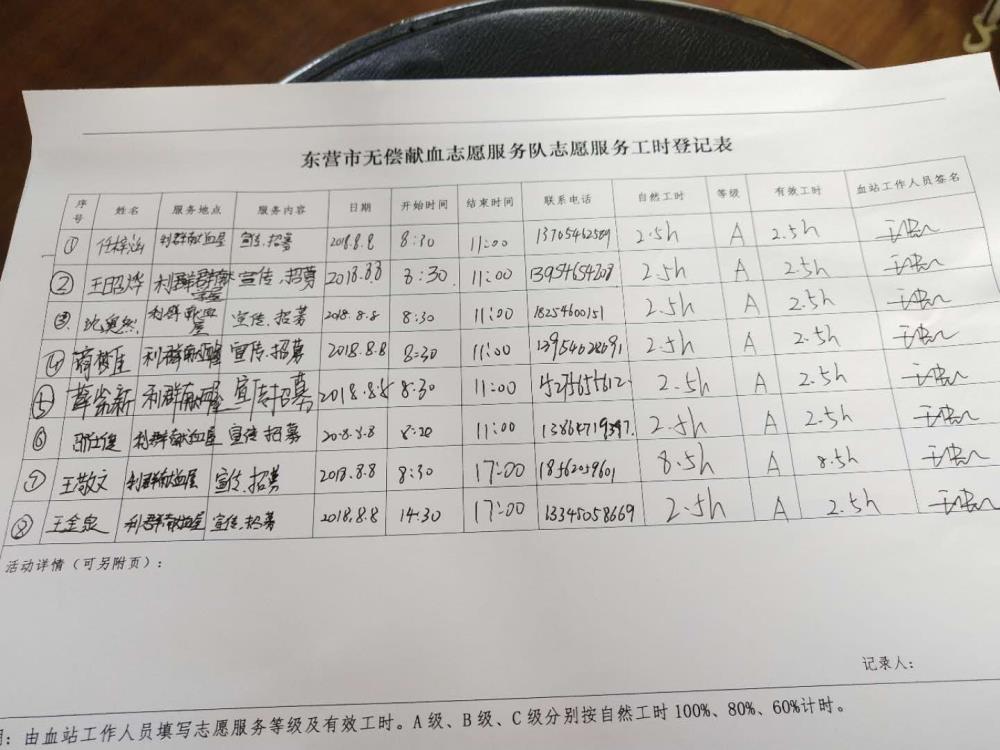 东营市无偿献血志愿服务队志愿服务工时登记表
序号 姓名 服务地点 服务内容 日期 开始时间 结束时间 联系电话 自然工时 等级 有效工时 血站工作人员签名
① 任梓涵 利群献血屋 宣传、招募 2018.8.8 8:30 11:00 13705462589 2.5h A 2.5h
② 王昭烨 利群献血屋 宣传、招募 2018.8.8 8:30 11:00 2.5h A 2.5h
③ 利群献血屋 宣传、招募 2018.8.8 8:30 11:00 18254600151 2.5h A 2.5h
④ 利群献血屋 宣传、招募 2018.8.8 8:30 11:00 13954628691 2.5h A 2.5h
⑤ 利群献血屋 宣传招募 2018.8.8 8:30 11:00 2.5h A 2.5h
⑥ 利群献血屋 宣传 招募 11:00 2.5h A 2.5h
⑦ 王敬文 利群献血屋 宣传、招募 2018.8.8 8:30 17:00 8.5h A 8.5h
⑧ 王金泉 利群献血屋 宣传、招募 2018.8.8 14:30 17:00 13345058669 2.5h A 2.5h
活动详情（可另附页）：
记录人：
明：由血站工作人员填写志愿服务等级及有效工时。A级、B级、C级分别按自然工时100%、80%、60%计时。